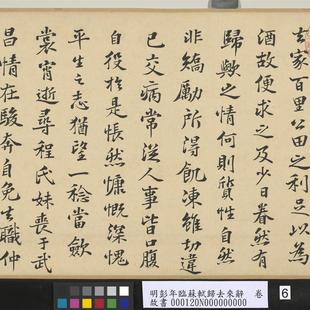 去家百里公田之利足以為
酒故便求之及少日眷然有
歸歟之情何則質性自然
非矯勵所得飢凍雖切違
已交病常從人事皆口腹
自役於是悵然慷慨深愧
平生之志猶望一稔當斂
裳宵逝尋程氏妹喪于武
昌情在駿奔自免去職仲
明彭年臨蘇軾歸去來辭 卷
故書 000120N000000000
6